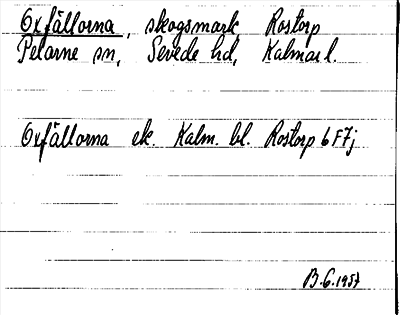 Oxfällorna, skogsmark, Rostorp
Pelarne sn, Sevede hd, Kalmar l.
Oxfällorna ek. Kalm. bl. Rostorp 6F7j
B.G. 1957